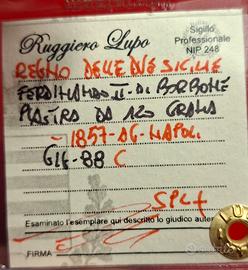 Ruggiero Lupo
Sigillo
Professionale
NIP 248
REGNO DELLE DUE SICILIE
FERDINANDO II DI BORBONE
PIASTRA DA 120 GRANA
- 1857 - AG - NAPOLI
G16-88 C
SPL+
Esaminato l'esemplare qui descritto lo giudico auten
FIRMA